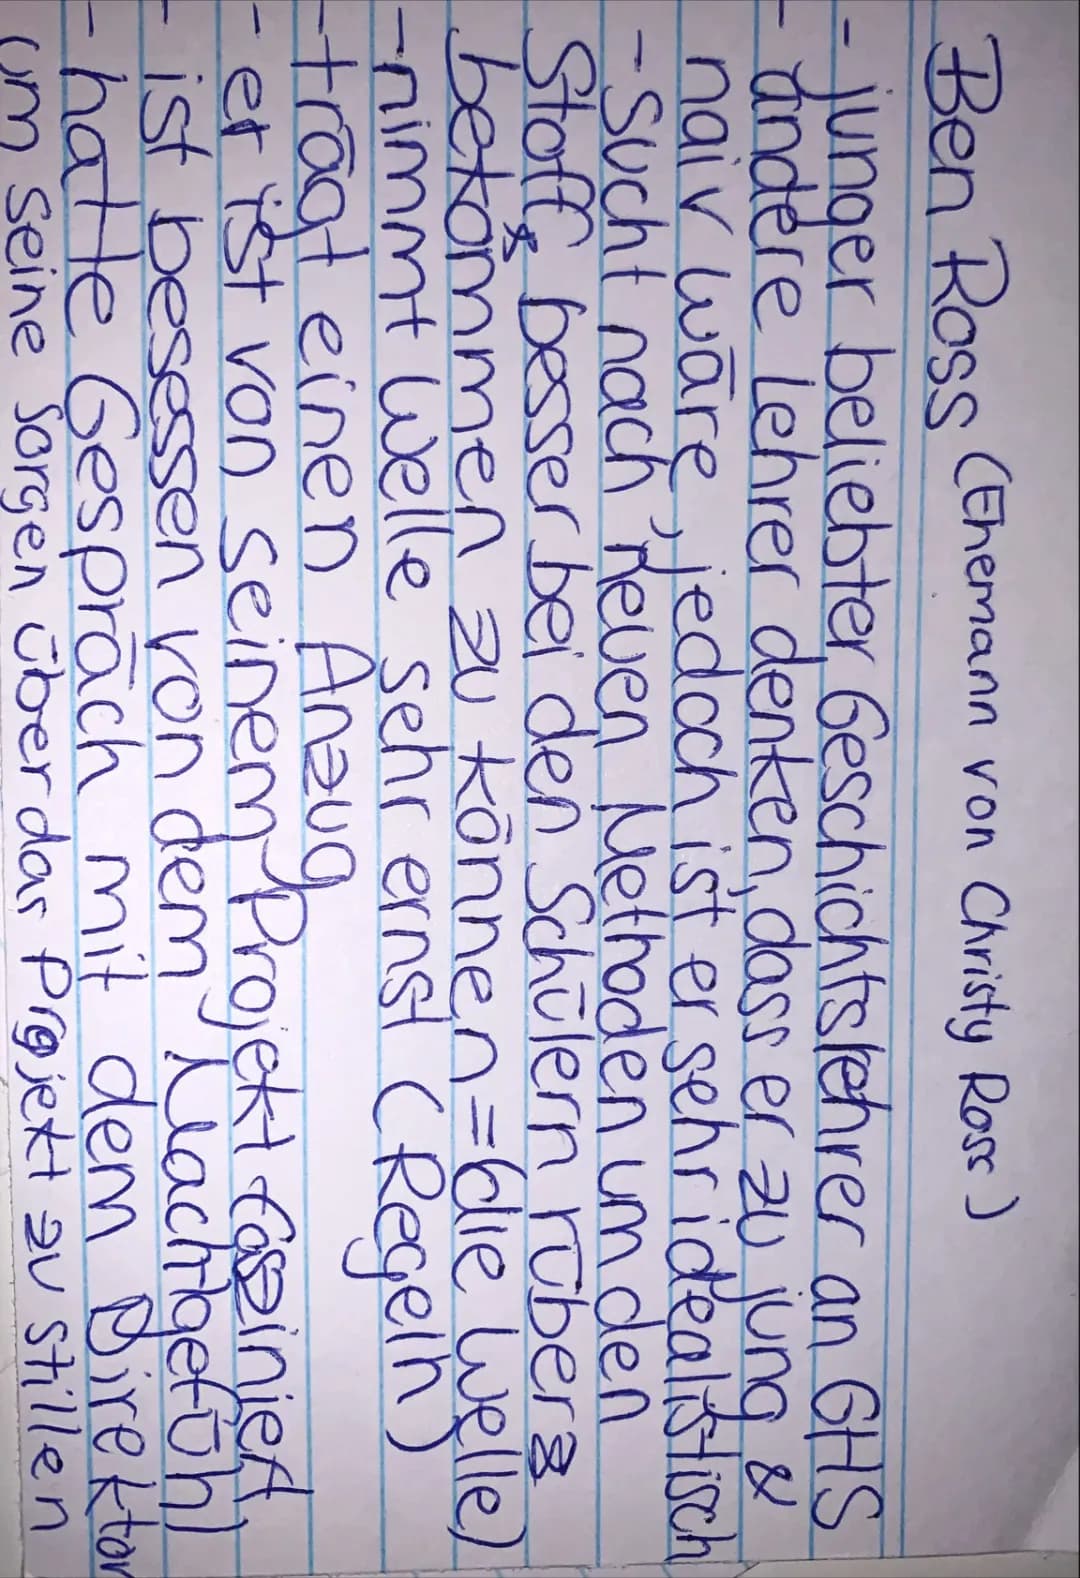 Ben Ross (Ehemann von Christy Ross)
- junger beliebter Geschichtslehrer an GHS
- andere Lehrer denken, dass er zu jung &
naiv wäre, jedoch ist er sehr idealistisch
- Sucht nach neuen Methoden um den
Stoff besser bei den Schülern rüber
bekommen zu können = (die Welle)
- nimmt Welle sehr ernst (Regeln)
- trägt einen Anzug
- er ist von seinem Projekt fasziniert
- ist besessen von dem (Machtgefüh)
- hatte Gespräch mit dem Direktor
(um seine Sorgen über das Projekt zu stillen